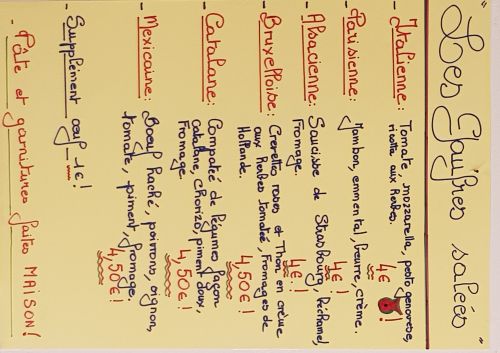 "Les Gaufres salées"
- Italienne: Tomate, mozzarella, pesto genovese,
risotto aux herbes. 4€!
- Parisienne: Jambon, emmental, beurre, crème.
4€!
- Alsacienne: Saucisse de Strasbourg, Béchamel,
Fromage. 4€!
- Bruxelloise: Crevettes roses et Thon en crème
aux herbes tomatée, Fromages de
Hollande. 4,50€!
- Catalane: Compotée de légumes façon
catalane, chorizo, piment doux,
Fromage. 4,50€!
- Mexicaine: Boeuf haché, poivrons, oignon,
tomate, piment, fromage.
4,50€!
- Supplément oeuf 1€!
- Pâte et garnitures faites MAISON!